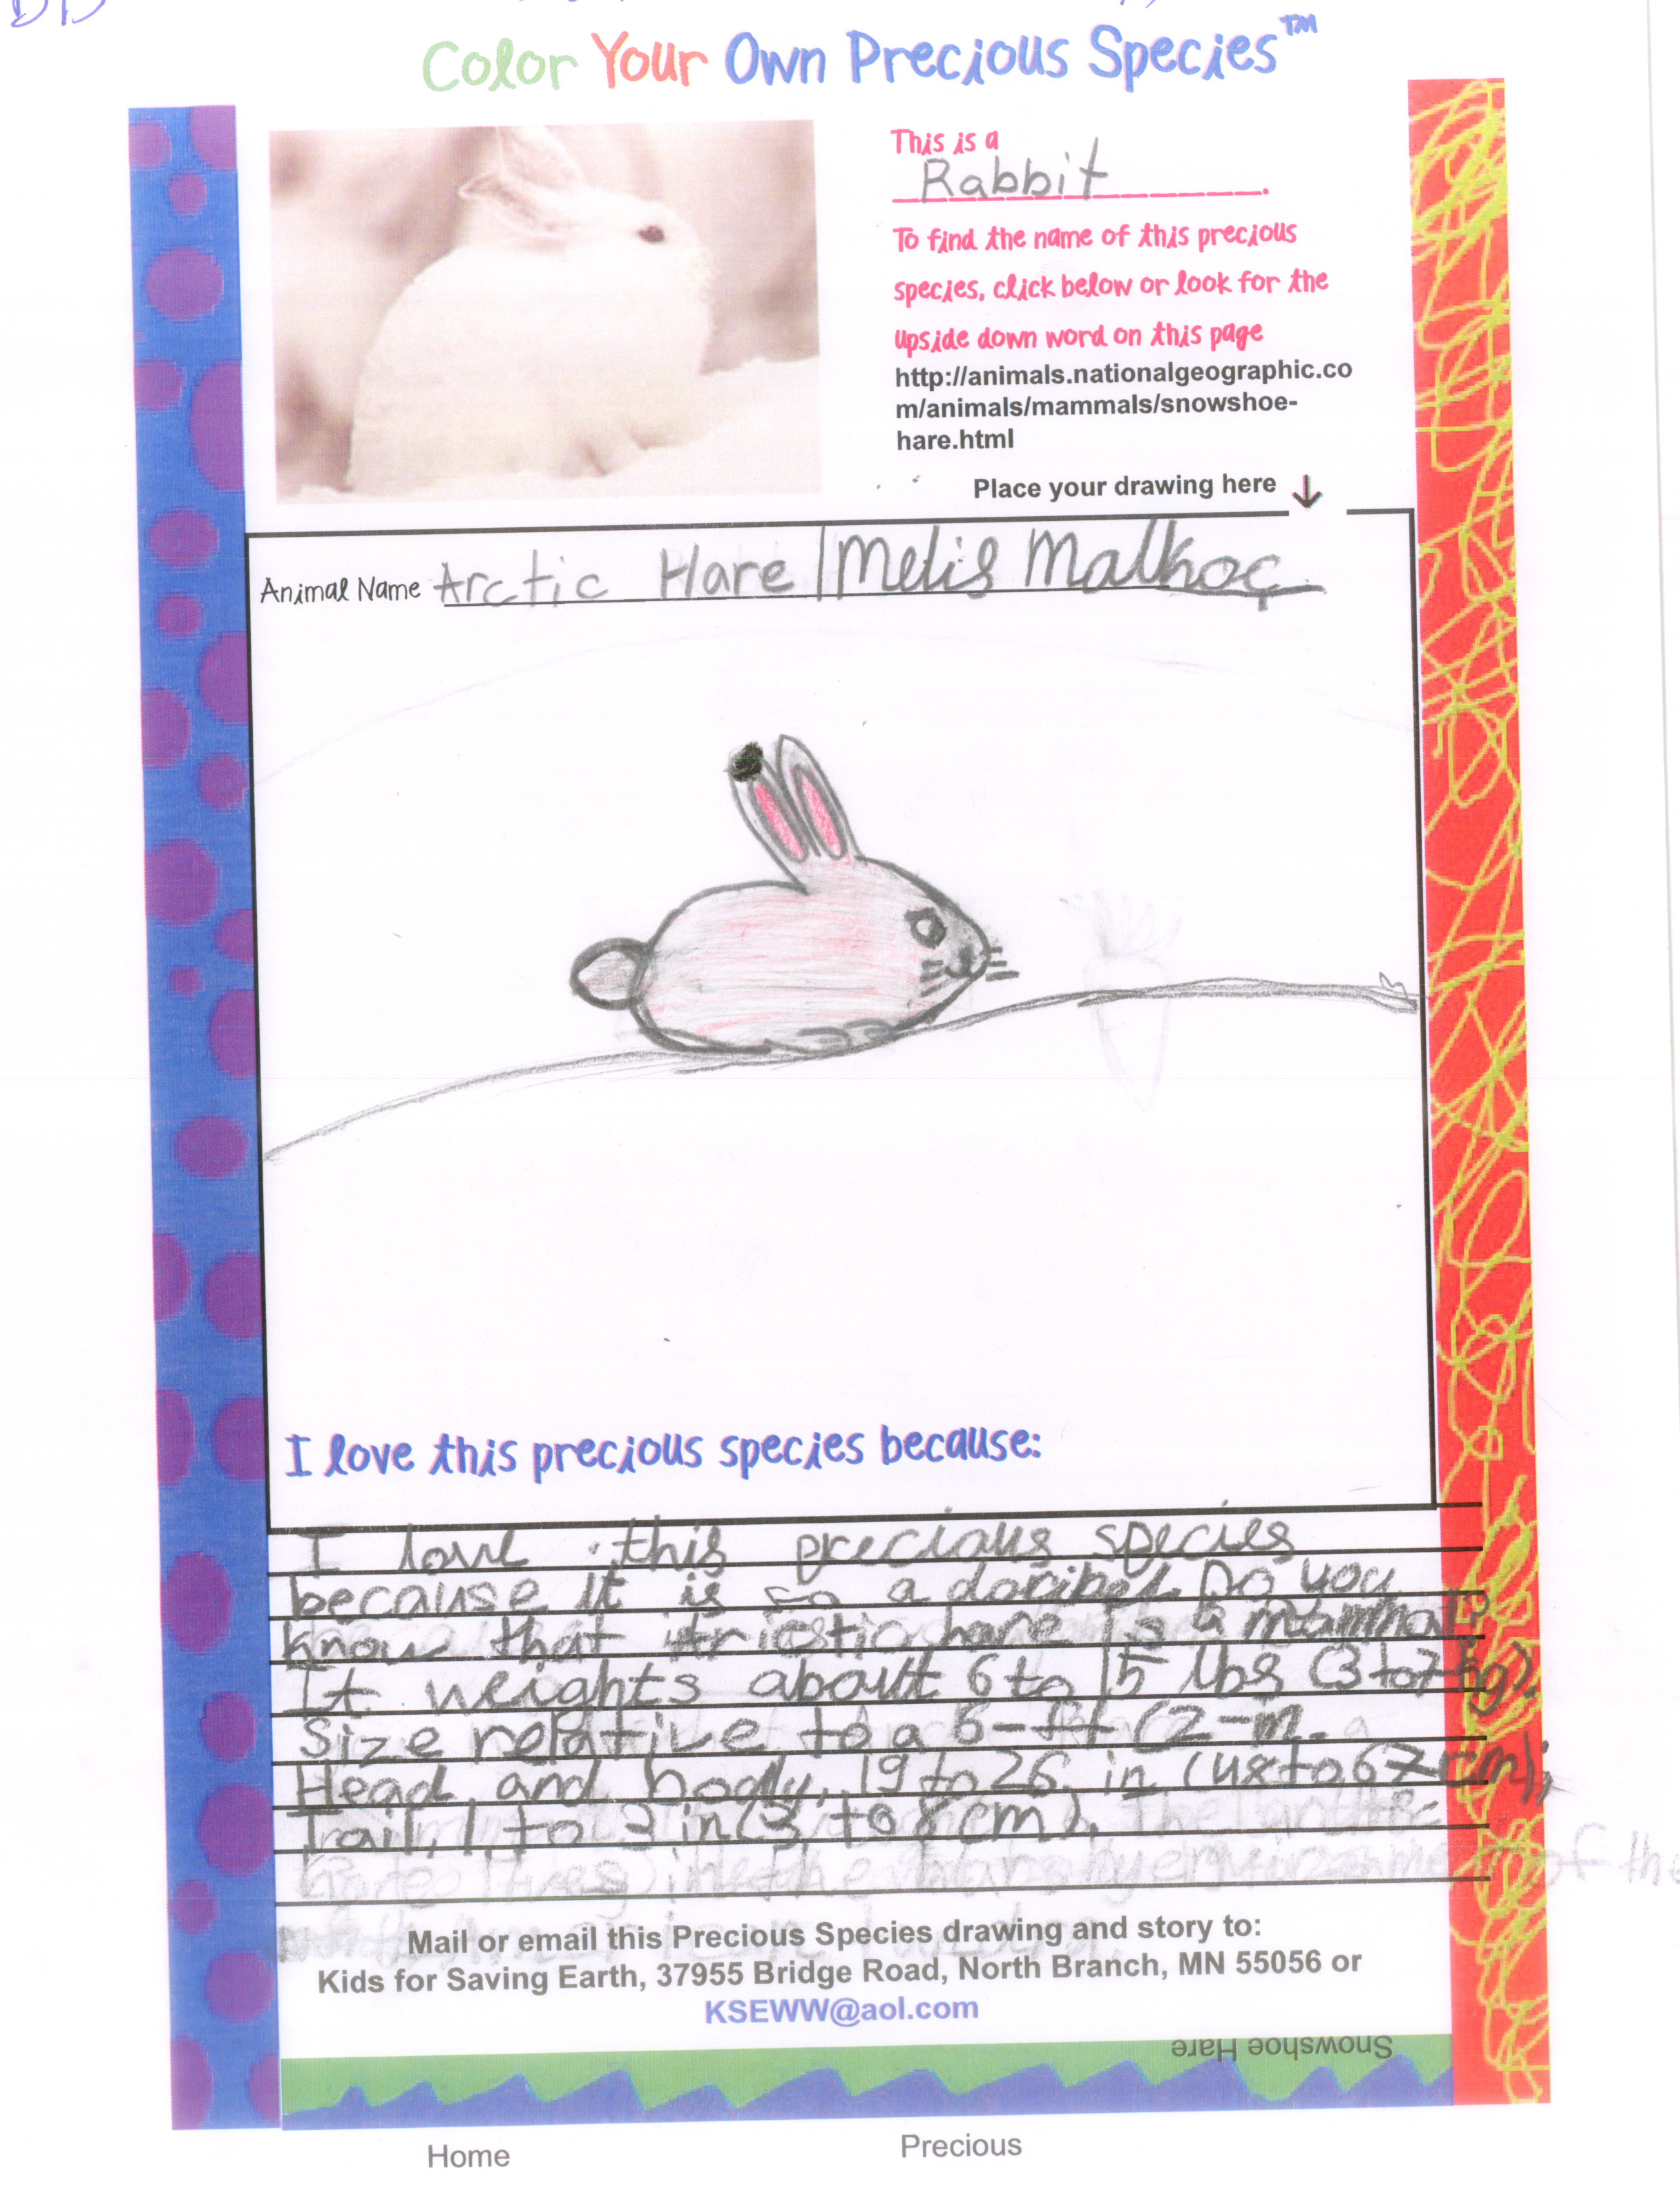 Color Your Own Precious Species™
This is a
Rabbit
To find the name of this precious
species, click below or look for the
upside down word on this page
http://animals.nationalgeographic.co
m/animals/mammals/snowshoe-
hare.html
Place your drawing here
Animal Name Arctic Hare | Melis Malkoç
I love this precious species because:
I love this precious species
because it is so a doribel. Do you
know that hare is a mammal?
It weights about 6 to 15 lbs (3 to 7 kg).
Size relative to a 6-ft (2-m.
Head and body, 19 to 26 in (48 to 67 cm);
Tail, 1 to 3 in (3 to 8 cm). The
in the of the
Mail or email this Precious Species drawing and story to:
Kids for Saving Earth, 37955 Bridge Road, North Branch, MN 55056 or
KSEWW@aol.com
Snowshoe Hare
Home Precious